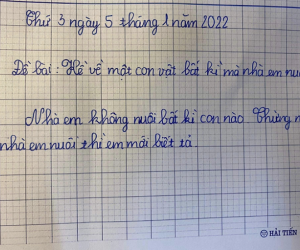 Thứ 3 ngày 5 tháng 1 năm 2022
Đề bài: Kể về một con vật bất kì mà nhà em nu
Nhà em không nuôi bất kì con nào Chừng n
nhà em nuôi thì em mới biết tả.
HẢI TIẾN